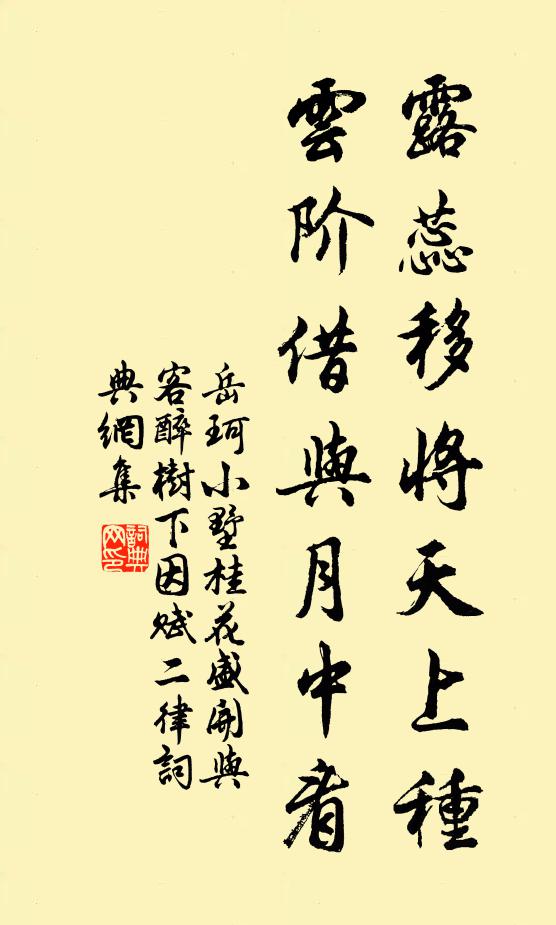 露蕊移將天上種
雲阶借與月中看
岳珂小墅桂花盛開與
客醉樹下因赋二律詞
典網集
詞典網印